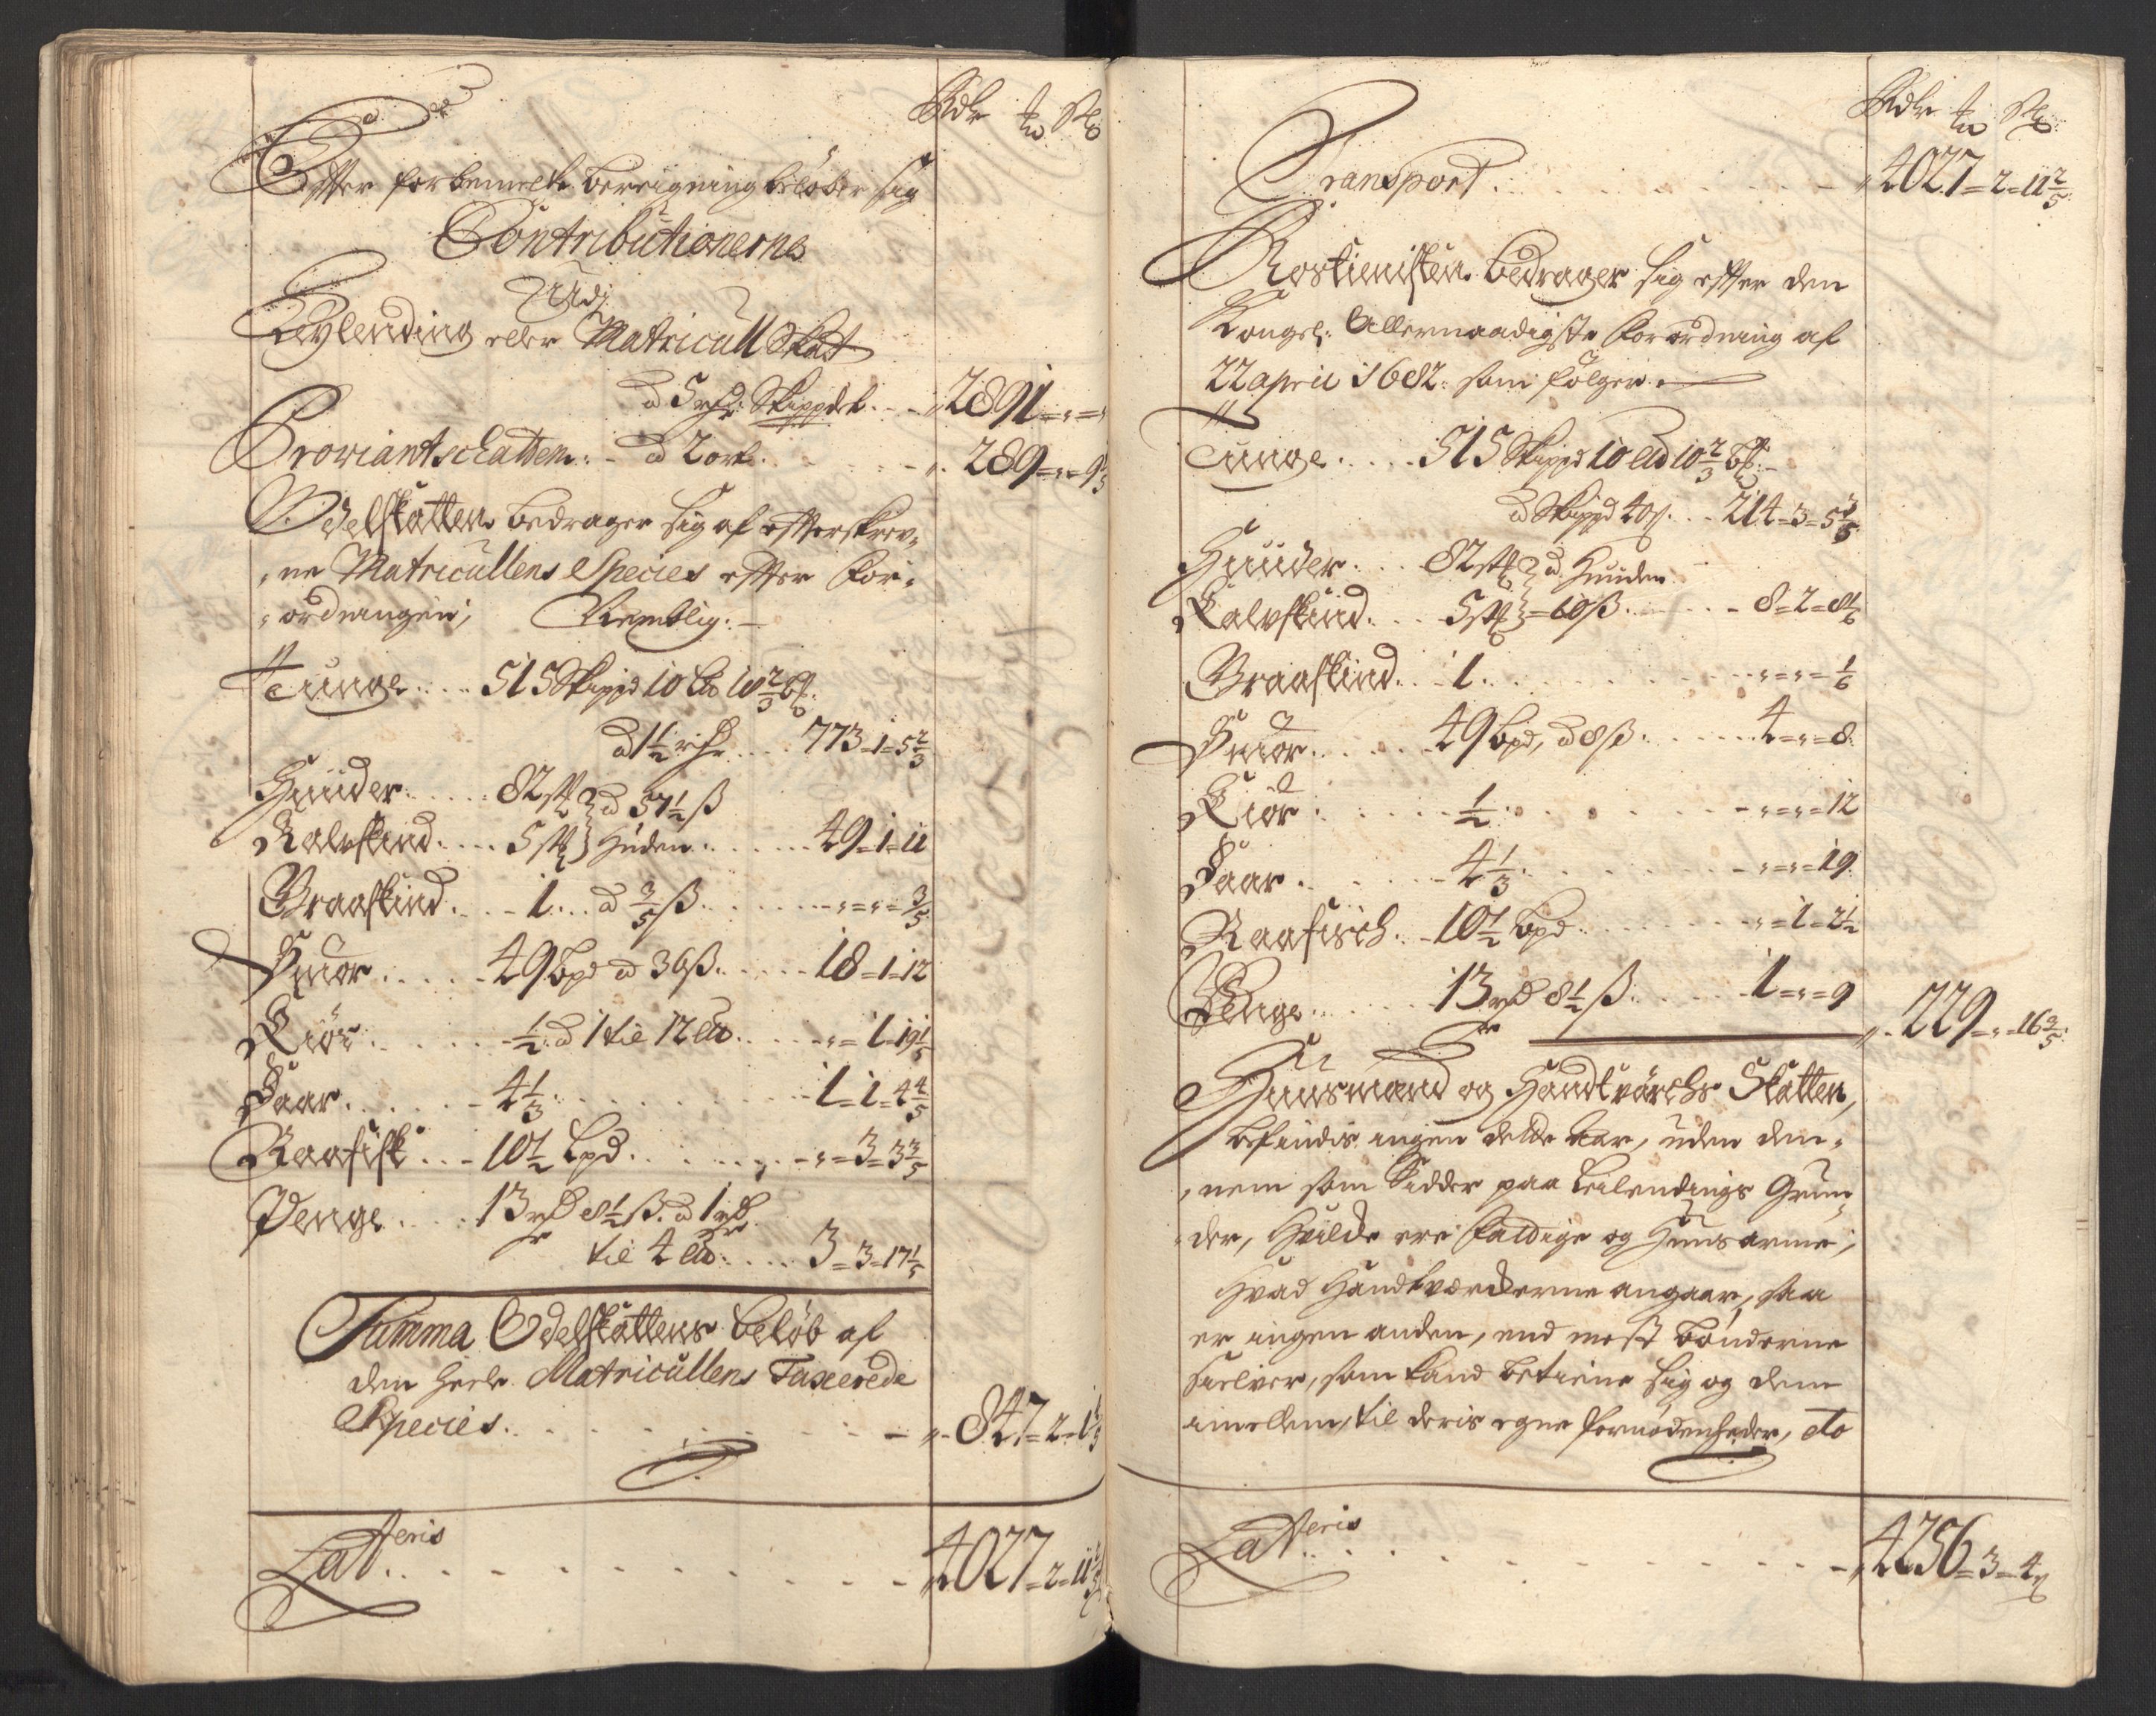 Rdr ß
Effter forbemelte Bereigning beløber sig
Contributionerne
Udj
Leylending eller Matricull Skat
à 5 Skippdt. 2891
Proviantschatten. à 2 ort. 289 = " = 9 1/5
Odelskatten bedrager sig af effterskrev-
ne Matricullens Species effter For-
ordningen, Nemblig.
Tunge 515 Skippd 10 10 2/3
à 1 1/2 773 = 1 = 5 2/3
Huuder 82 à 57 1/2 ß
Kalvskind 5 Huden 49 = 1 = 11
Graaskind 1 à 3/5 ß " = " = 3/5
Smør 49 bpd à 36 ß 18 = 1 = 12
Kiør 1/2 à 1 til 12 " = 1 = 19 1/5
Faar 4 1/3 1 = 1 = 4 4/5
Raafisk 10 1/2 bpd " = 3 = 3 3/5
Penge 13 8 1/2 ß à 1
til 4 3 = 3 = 17 1/5
Summa Odelskattens beløb af
den heele Matricullens Taxerede
Species 847 = 2 = 1
Latteris 4027 = 2 = 11
Rdr ß
Transport 4027 = 2 = 11 2/5
Rostienisten bedrager sig effter den
Kongel: Allernaadigste Forordning af
22 april 1682. som følger
Tunge 515 Skippd 10 10 2/3
à Skippd 40 ß 214 = 3 = 5
Huuder 82 à Huuden
Kalvskind 5 = 10 ß 8 = 2 = 8 1/6
Graaskind 1 " = " = 1/6
Smør 49 bpd, à 8 ß 4 = " = 8
Kiør 1/2 " = " = 12
Faar 4 1/3 " = " = 19
Raafisch 10 1/2 bpd " = 1 = 2 1/2
Penge 13 8 1/2 ß 1 = " = 9
229 = " = 16
Huusmænd og Handtværchs Skatten,
befindis ingen uden den-
nem som Sidder paa Leilendings Grun-
der, Huilde ere fattige og Huusarme,
Hvad Handtværckerne angaar, saa
er ingen anden, end mest bønderne
sielver, som kand betiene sig og dem
imellem, til deris egne fornødenheder, do
Latteris 4256 = 3 = 4